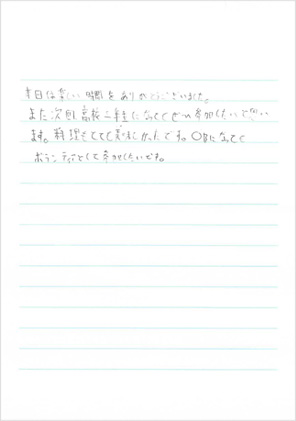 本日は楽しい時間をありがとうございました。
また次回高校二年生になってもぜひ参加したいと思い
ます。料理もとても美味しかったです。〇〇になっても
ボランティアとして参加したいです。